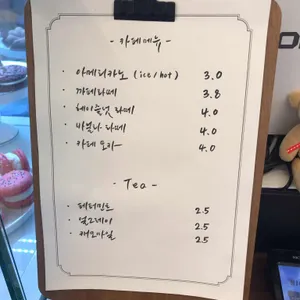 - 카페메뉴 -
· 아메리카노 (ice/hot) 3.0
· 까페라떼 3.8
· 헤이즐넛 라떼 4.0
· 바닐라 라떼 4.0
· 카페 모카 4.0
- Tea -
· 페퍼민트 2.5
· 얼그레이 2.5
· 캐모마일 2.5